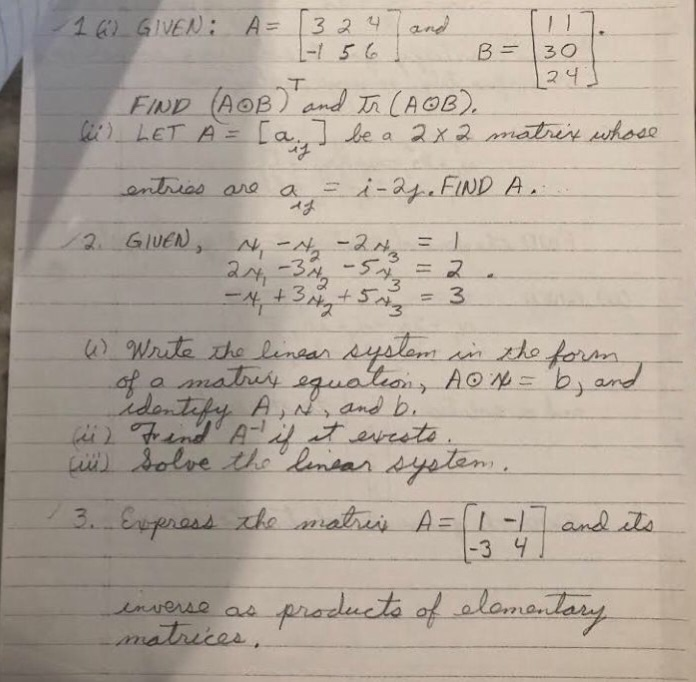 1 (i) GIVEN: A = [3 2 4 and [1 1].
-1 5 6] B = 3 0
2 4]
FIND (A⊙B)ᵀ and Tr (A⊙B).
(ii) LET A = [aᵢⱼ] be a 2 x 2 matrix whose
entries are aᵢⱼ = i - 2j. FIND A.
2. GIVEN, x₁ - x₂ - 2x₃ = 1
2x₁ - 3x₂ - 5x₃ = 2 .
-x₁ + 3x₂ + 5x₃ = 3
(i) Write the linear system in the form
of a matrix equation, A⊙x = b, and
identify A, x, and b.
(ii) Find A⁻¹ if it exists.
(iii) Solve the linear system.
3. Express the matrix A = [1 -1] and its
[-3 4]
inverse as products of elementary
matrices.